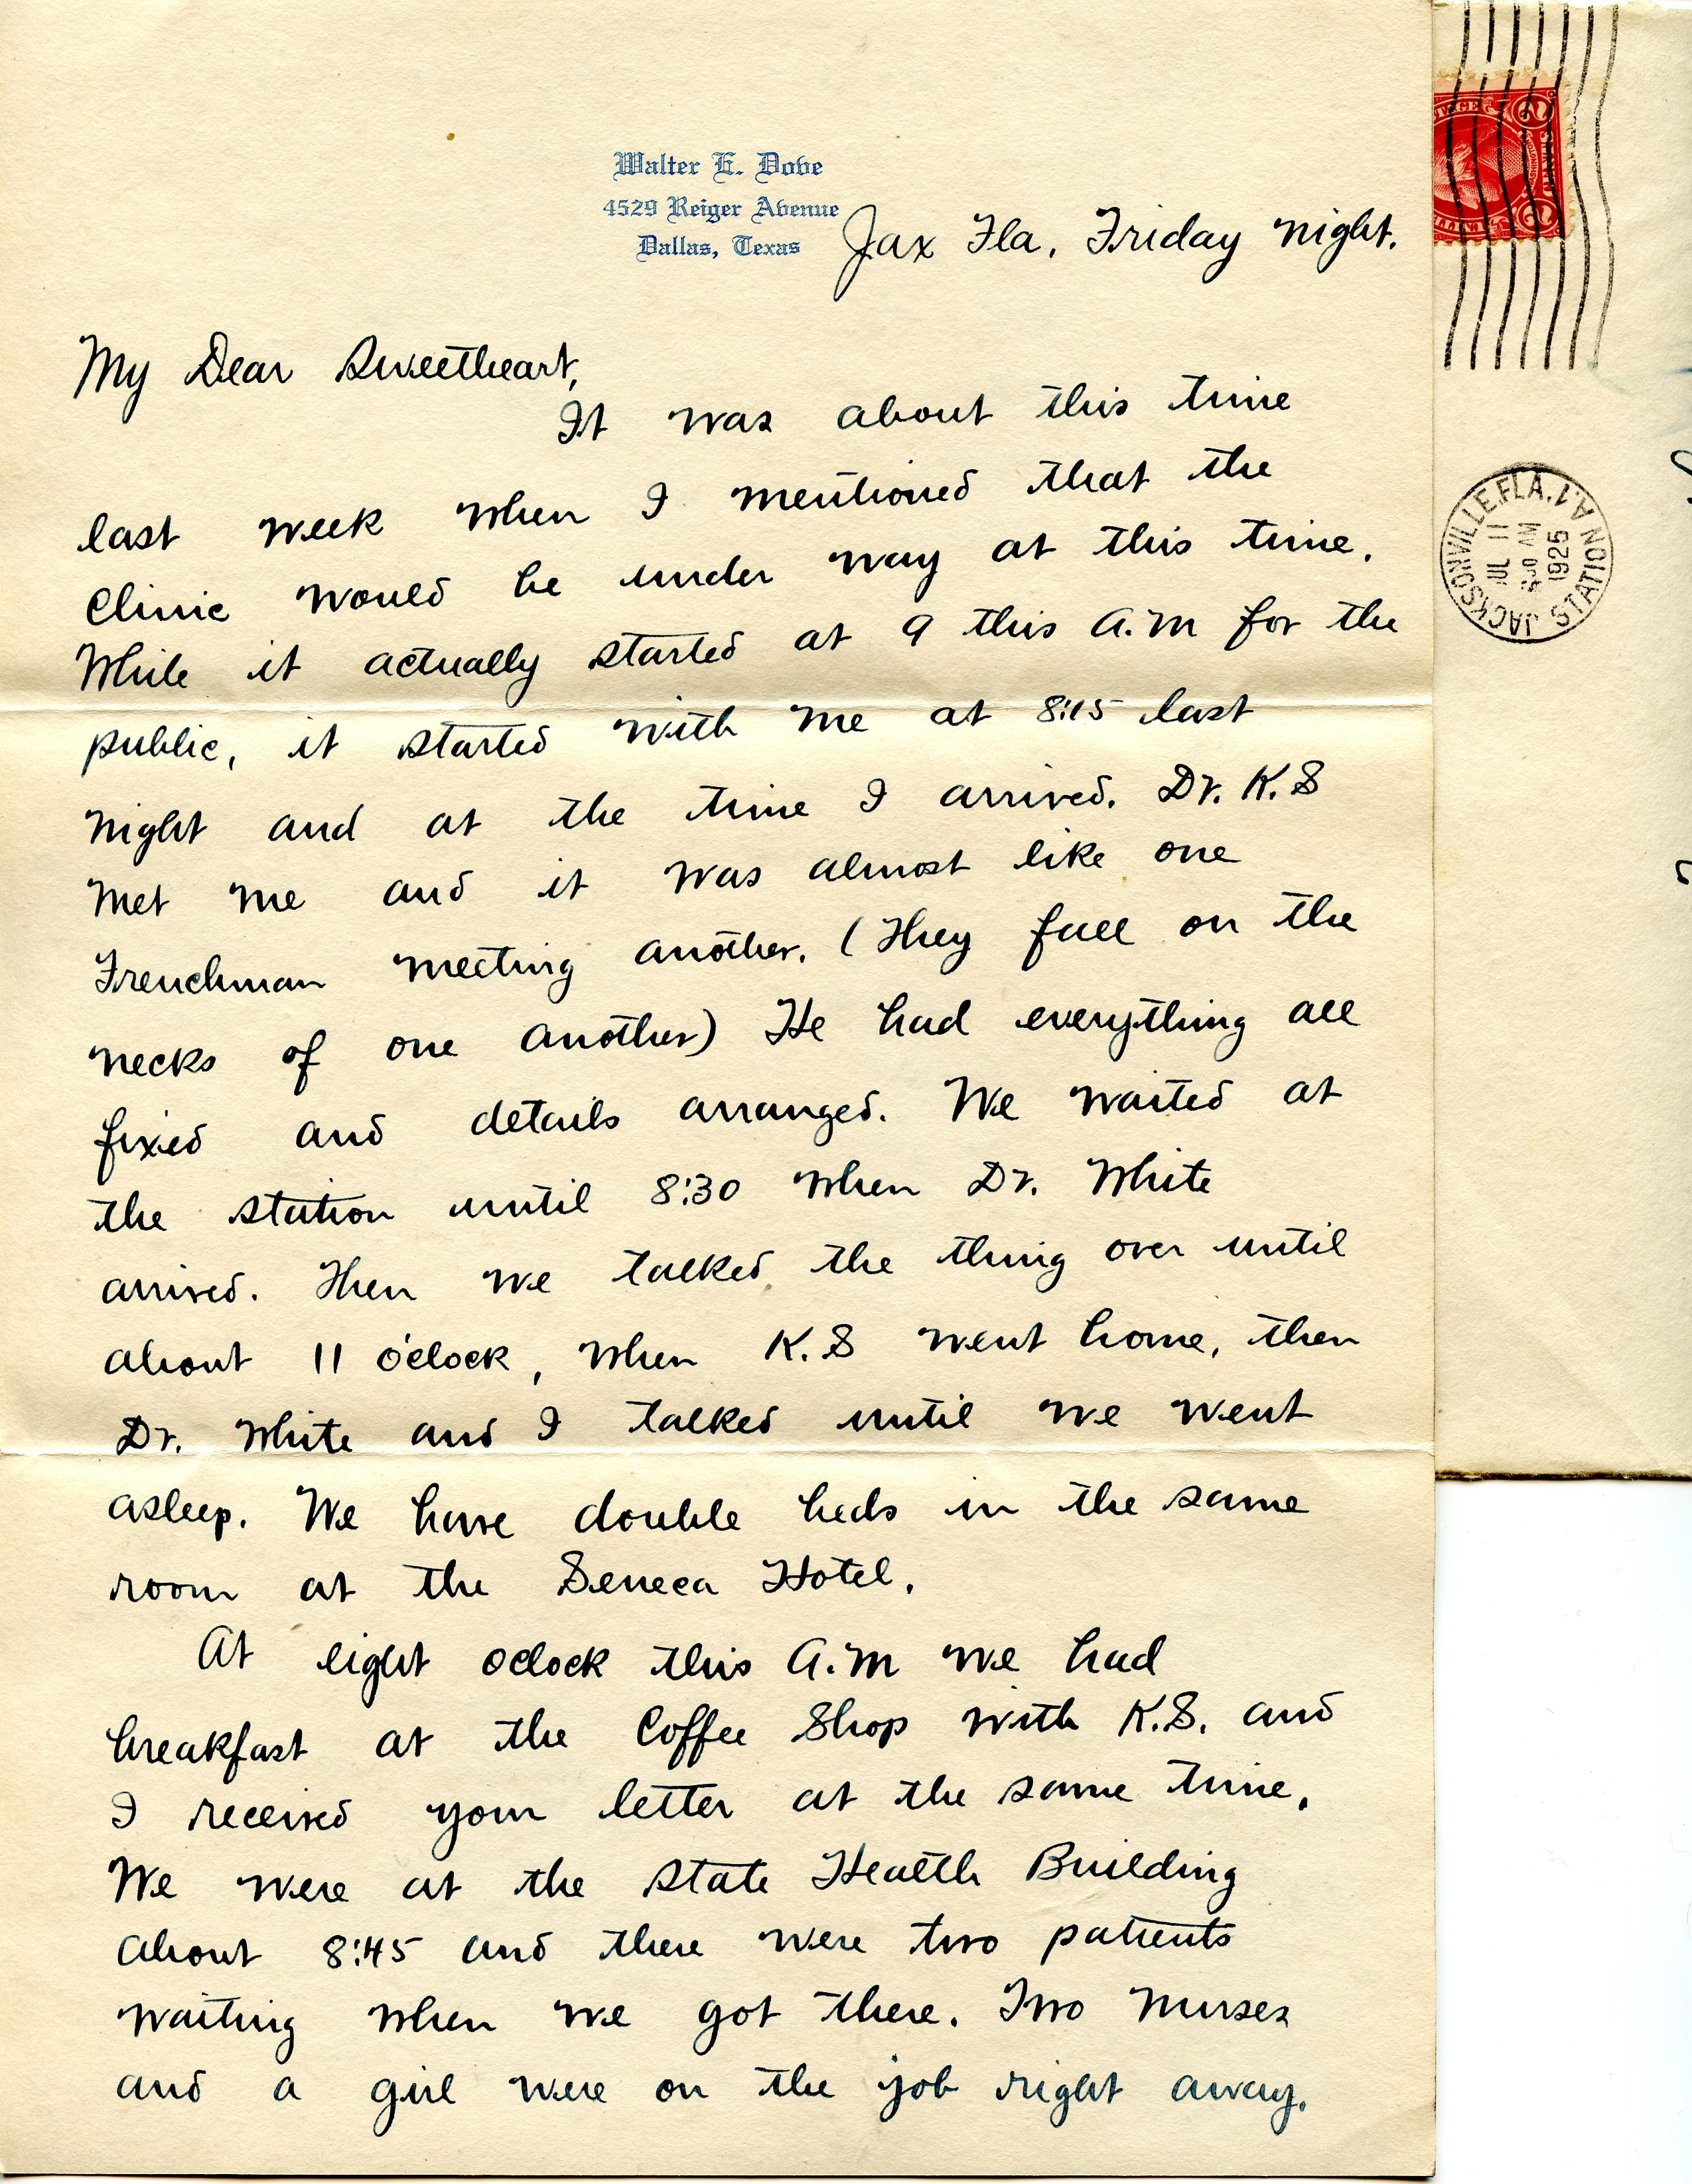 Walter E. Dove
4529 Reiger Avenue
Dallas, Texas
Jax Fla, Friday night.
My Dear Sweetheart,
It was about this time
last week when I mentioned that the
Clinic would be under way at this time.
While it actually started at 9 this A.M for the
public, it started with me at 8:15 last
night and at the time I arrived. Dr. K.S
met me and it was almost like one
Frenchman meeting another. (They fall on the
necks of one another) He had everything all
fixed and details arranged. We waited at
the station until 8:30 when Dr. White
arrived. Then we talked the thing over until
about 11 o'clock, when K.S went home, then
Dr. White and I talked until we went
asleep. We have double beds in the same
room at the Seneca Hotel.
At eight oclock this A.M we had
breakfast at the Coffee Shop with K.S. and
I received your letter at the same time.
We were at the State Health Building
about 8:45 and there were two patients
waiting when we got there. Two nurses
and a girl were on the job right away.
JACKSONVILLE, FLA.
STATION
JUL 11
AM
1925
2
CENTS
2